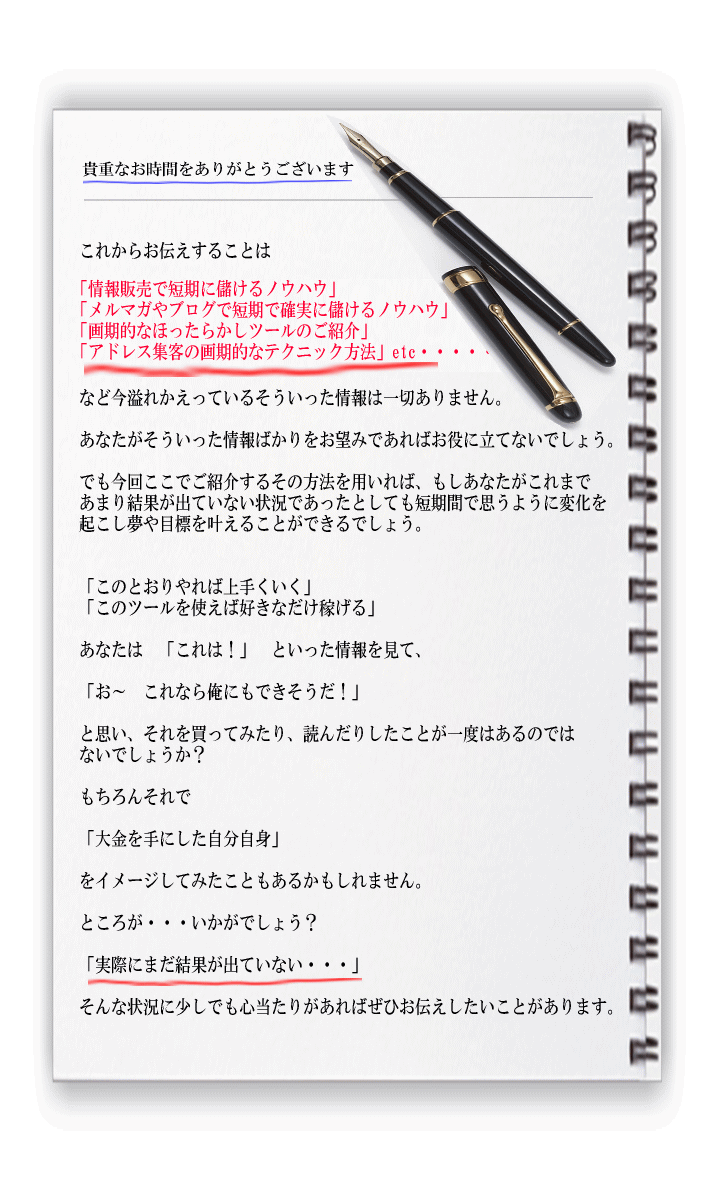 貴重なお時間をありがとうございます
これからお伝えすることは
「情報販売で短期に儲けるノウハウ」
「メルマガやブログで短期で確実に儲けるノウハウ」
「画期的なほったらかしツールのご紹介」
「アドレス集客の画期的なテクニック方法」etc・・・・・
など今溢れかえっているそういった情報は一切ありません。
あなたがそういった情報ばかりをお望みであればお役に立てないでしょう。
でも今回ここでご紹介するその方法を用いれば、もしあなたがこれまで
あまり結果が出ていない状況であったとしても短期間で思うように変化を
起こし夢や目標を叶えることができるでしょう。
「このとおりやれば上手くいく」
「このツールを使えば好きなだけ稼げる」
あなたは　「これは！」　といった情報を見て、
「お～　これなら俺にもできそうだ！」
と思い、それを買ってみたり、読んだりしたことが一度はあるのでは
ないでしょうか？
もちろんそれで
「大金を手にした自分自身」
をイメージしてみたこともあるかもしれません。
ところが・・・いかがでしょう？
「実際にまだ結果が出ていない・・・」
そんな状況に少しでも心当たりがあればぜひお伝えしたいことがあります。